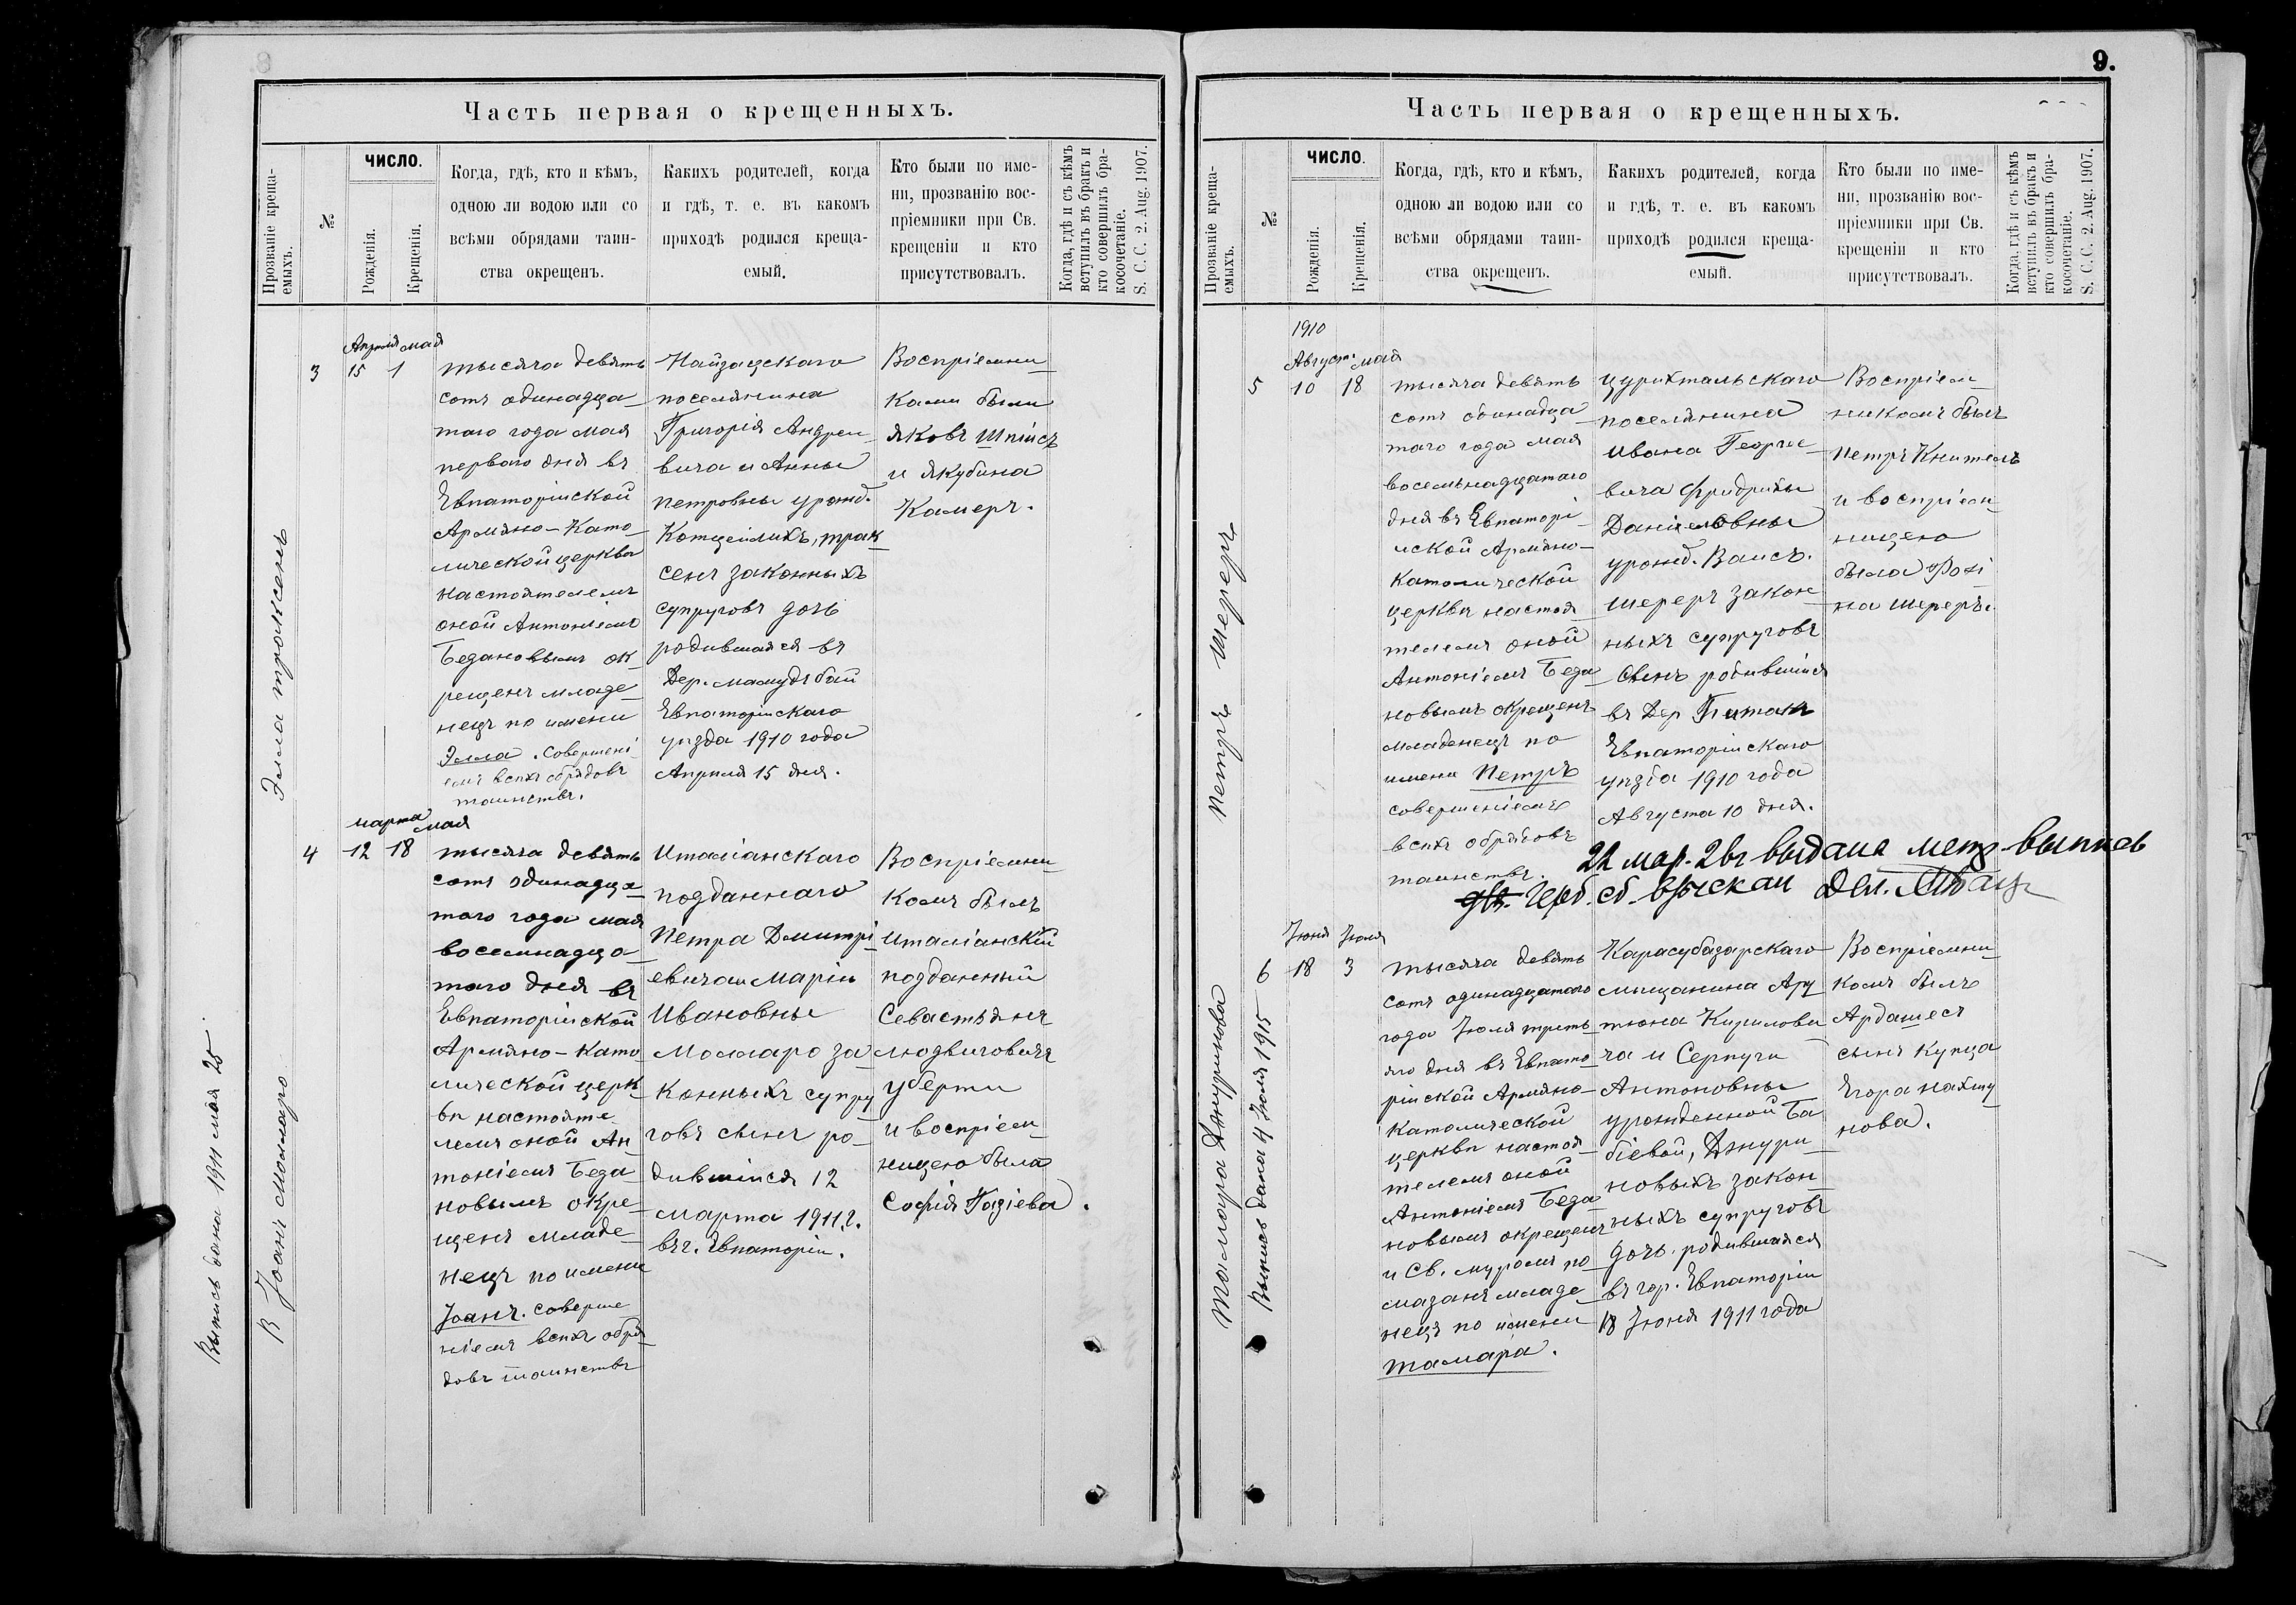 Часть первая о крещенныхъ.
Прозваніе креща-
емыхъ.
№
ЧИСЛО.
Рожденія.
Крещенія.
Когда, гдѣ, кто и кѣмъ,
одною ли водою или со
всѣми обрядами таин-
ства окрещенъ.
Какихъ родителей, когда
и гдѣ, т. е. въ какомъ
приходѣ родился креща-
емый.
Кто были по име-
ни, прозванію вос-
пріемники при Св.
крещеніи и кто
присутствовалъ.
Когда, гдѣ и съ кѣмъ
вступилъ въ бракъ и
кто совершилъ бра-
косочетаніе.
S. C. C. 2. Aug. 1907.
Элла Траксенъ
3
Апрѣля мая
15 1
тысяча девять
сотъ одинадца-
таго года мая
перваго дня въ
Евпаторійской
Армяно-Като-
лической церкви
настоятелемъ
оной Антоніемъ
Бедановымъ ок-
рещенъ младе-
нецъ по имени
Элла. Совершені-
емъ всѣхъ обрядовъ
таинствъ.
Найзацскаго
поселянина
Григорія Андрее-
вича и Анны
Петровны урожд.
Котцеймихъ, Трак-
сенъ законныхъ
супруговъ дочь
родившаяся въ
Дер. Мамудъ бай
Евпаторійскаго
уѣзда 1910 года
Апрѣля 15 дня.
Воспріемни-
ками были
Яковъ Шписъ
и Якубина
Камеръ.
Выпись дана 1911 мая 25.
В Іоанъ Молларо
4
марта мая
12 18
тысяча девять
сотъ одинадца-
таго года мая
восемнадца-
таго дня въ
Евпаторійской
Армяно-Като-
лической церк-
вѣ настояте-
лемъ оной Ан-
тоніемъ Беда-
новымъ окре-
щенъ младе-
нецъ по имени
Іоанъ. соверше-
ніемъ всѣхъ обря-
довъ таинствъ
Италіанскаго
подданнаго
Петра Дмитрі-
евича и Маріи
Ивановны
Молларо за-
конныхъ супру-
говъ сынъ ро-
дившійся 12
марта 1911 г.
въ г. Евпаторіи.
Воспріемни-
комъ былъ
Италіанскій
подданный
Севастьянъ
Людвиговичъ
Уберти
и воспріем-
ницею была
Софія Газіева.
9.
Часть первая о крещенныхъ.
Прозваніе креща-
емыхъ.
№
ЧИСЛО.
Рожденія.
Крещенія.
Когда, гдѣ, кто и кѣмъ,
одною ли водою или со
всѣми обрядами таин-
ства окрещенъ.
Какихъ родителей, когда
и гдѣ, т. е. въ какомъ
приходѣ родился креща-
емый.
Кто были по име-
ни, прозванію вос-
пріемники при Св.
крещеніи и кто
присутствовалъ.
Когда, гдѣ и съ кѣмъ
вступилъ въ бракъ и
кто совершилъ бра-
косочетаніе.
S. C. C. 2. Aug. 1907.
Петръ Шереръ
5
1910
Август. мая
10 18
тысяча девять
сотъ одинадца
таго года мая
восемьнадцатаго
дня въ Евпаторі-
йской Армяно-
католической
церквѣ настоя
телемъ оной
Антоніемъ Беда
новымъ окрещенъ
младенецъ по
имени Петръ
совершеніемъ
всѣхъ обрядовъ
таинствъ.
Цурихтальскаго
поселянина
Ивана Георгіе-
вича Фридрихи
Даніиловны
урожд. Вайсъ.
Шереръ закон-
ныхъ супруговъ
Сынъ родившійся
въ Дер
Евпаторійскаго
уѣзда 1910 года
Августа 10 дня.
Воспріем-
никомъ былъ
Петръ Книтель
и воспріем-
ницею
была Рохі-
на Шереръ.
22 мар. 2 вт выдана метр. выпись
Герб. сб. взыскан
Тамара Джуринова
Выпись дана 4 Іюля 1915
6
Іюня Іюля
18 3
тысяча девять
сотъ одинадцатаго
года Іюля треть-
яго дня въ Евпато-
рійской Армяно-
католической
церквѣ настоя-
телемъ оной
Антоніемъ Беда
новымъ окрещенъ
и Св. муромъ по-
мазанъ младе-
нецъ по имени
Тамара.
Карасубазарскаго
мѣщанина Ару
тюна Кирилови
ча и Серпуги
Антоновны
урожденной Ба
біевой, Джури-
новыхъ закон-
ныхъ супруговъ
дочь. родившаяся
въ гор. Евпаторіи
18 Іюня 1911 года
Воспріемни-
комъ былъ
Ардашесъ
сынъ Купца
Егора Нахшу-
нова.